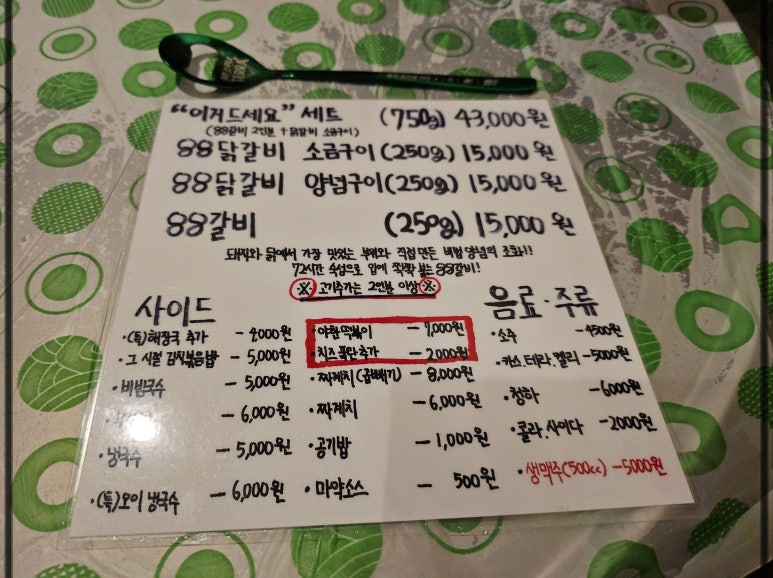 "이거드세요" 세트 (750g) 43,000원
(88갈비 2인분 + 닭갈비 소금구이)
88닭갈비 소금구이 (250g) 15,000원
88닭갈비 양념구이 (250g) 15,000원
88갈비 (250g) 15,000원
돼지와 닭에서 가장 맛있는 부위와 직접 만든 비법 양념의 조화!!
72시간 숙성으로 입에 쫙쫙 붙는 88갈비!
※ 고기추가는 2인분 이상 ※
사이드
·(특)해장국 추가 - 4000원
·그 시절 김치볶음밥 - 5,000원
·비빔국수 - 5,000원
- 6,000원
·냉국수 - 5,000원
·(특)오이 냉국수 - 6,000원
·야한 떡볶이 - 7,000원
·치즈 폭탄 추가 - 2000원
·짜계치 (곱빼기) - 8,000원
·짜계치 - 6,000원
·공기밥 - 1,000원
·마약소스 - 500원
음료·주류
·소주 - 4500원
·카스.테라.켈리 - 5000원
·청하 - 6000원
·콜라.사이다 - 2000원
·생맥주(500cc) - 5000원